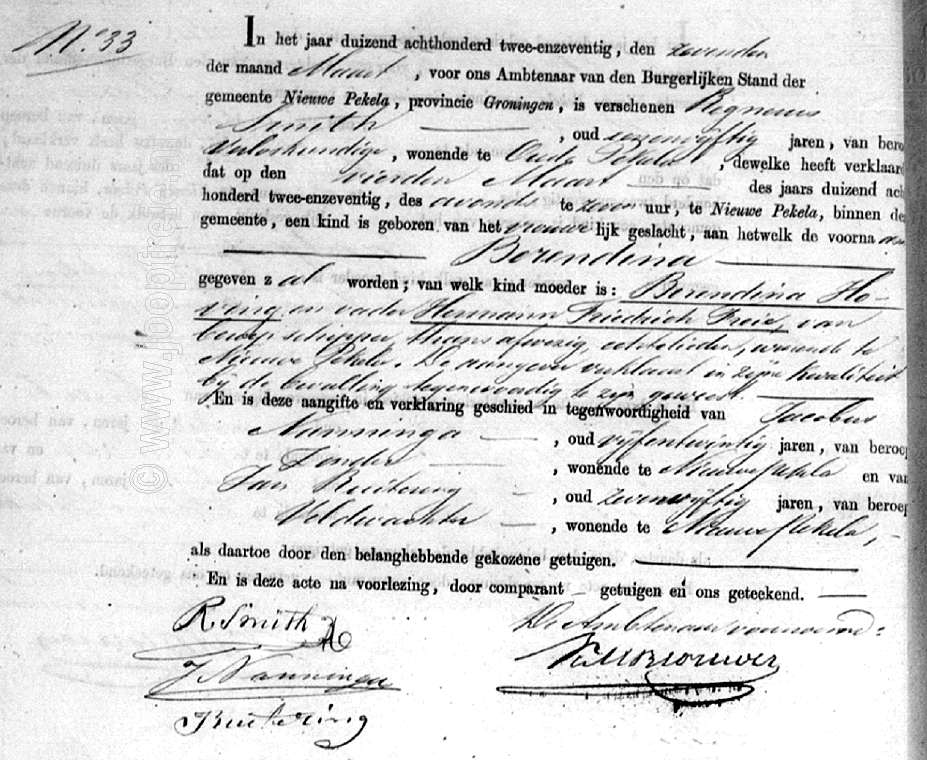 N.o 33
In het jaar duizend achthonderd twee-enzeventig, den zevenden
der maand Maart, voor ons Ambtenaar van den Burgerlijken Stand der
gemeente Nieuwe Pekela, provincie Groningen, is verschenen
Smith, oud zeven­vijftig jaren, van bero
Verloskundige, wonende te Oude Pekela, dewelke heeft verklaard
dat op den vierden Maart des jaars duizend ach
honderd twee-enzeventig, des avonds te zeven uur, te Nieuwe Pekela, binnen de
gemeente, een kind is geboren van het vrouwelijk geslacht, aan hetwelk de voorna am
Berendina
gegeven zal worden; van welk kind moeder is: Berendina Ho-
ving en vader Hermann Friedrich Freie, van
beroep schipper, thans afwezig, echtelieden, wonende te
Nieuwe Pekela. De aangever verklaart in zijne kwaliteit
bij de bevalling tegenwoordig te zijn geweest.
En is deze aangifte en verklaring geschied in tegenwoordigheid van Jacobus
Nanninga, oud vijfentwintig jaren, van beroep
wonende te Nieuwe Pekela en van
Jan Kuitering, oud zevenvijftig jaren, van beroep
Veldwachter, wonende te Nieuwe Pekela,
als daartoe door den belanghebbende gekozene getuigen.
En is deze acte na voorlezing, door comparant getuigen en ons geteekend.
R. Smith
De Ambtenaar voornoemd:
J Nanninga
Kuitering
© www.joopfreie.n